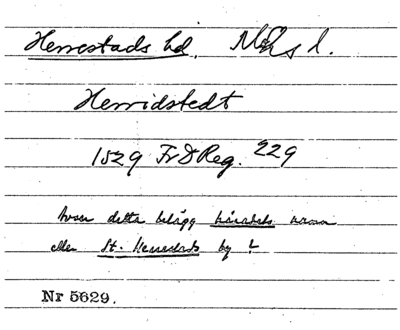 Herrestads hd. M:hs l.
Herridstedt
1529 Fr I Reg. 229
detta belägg härads namn
eller St. Herrestads by ?
Nr 5629.